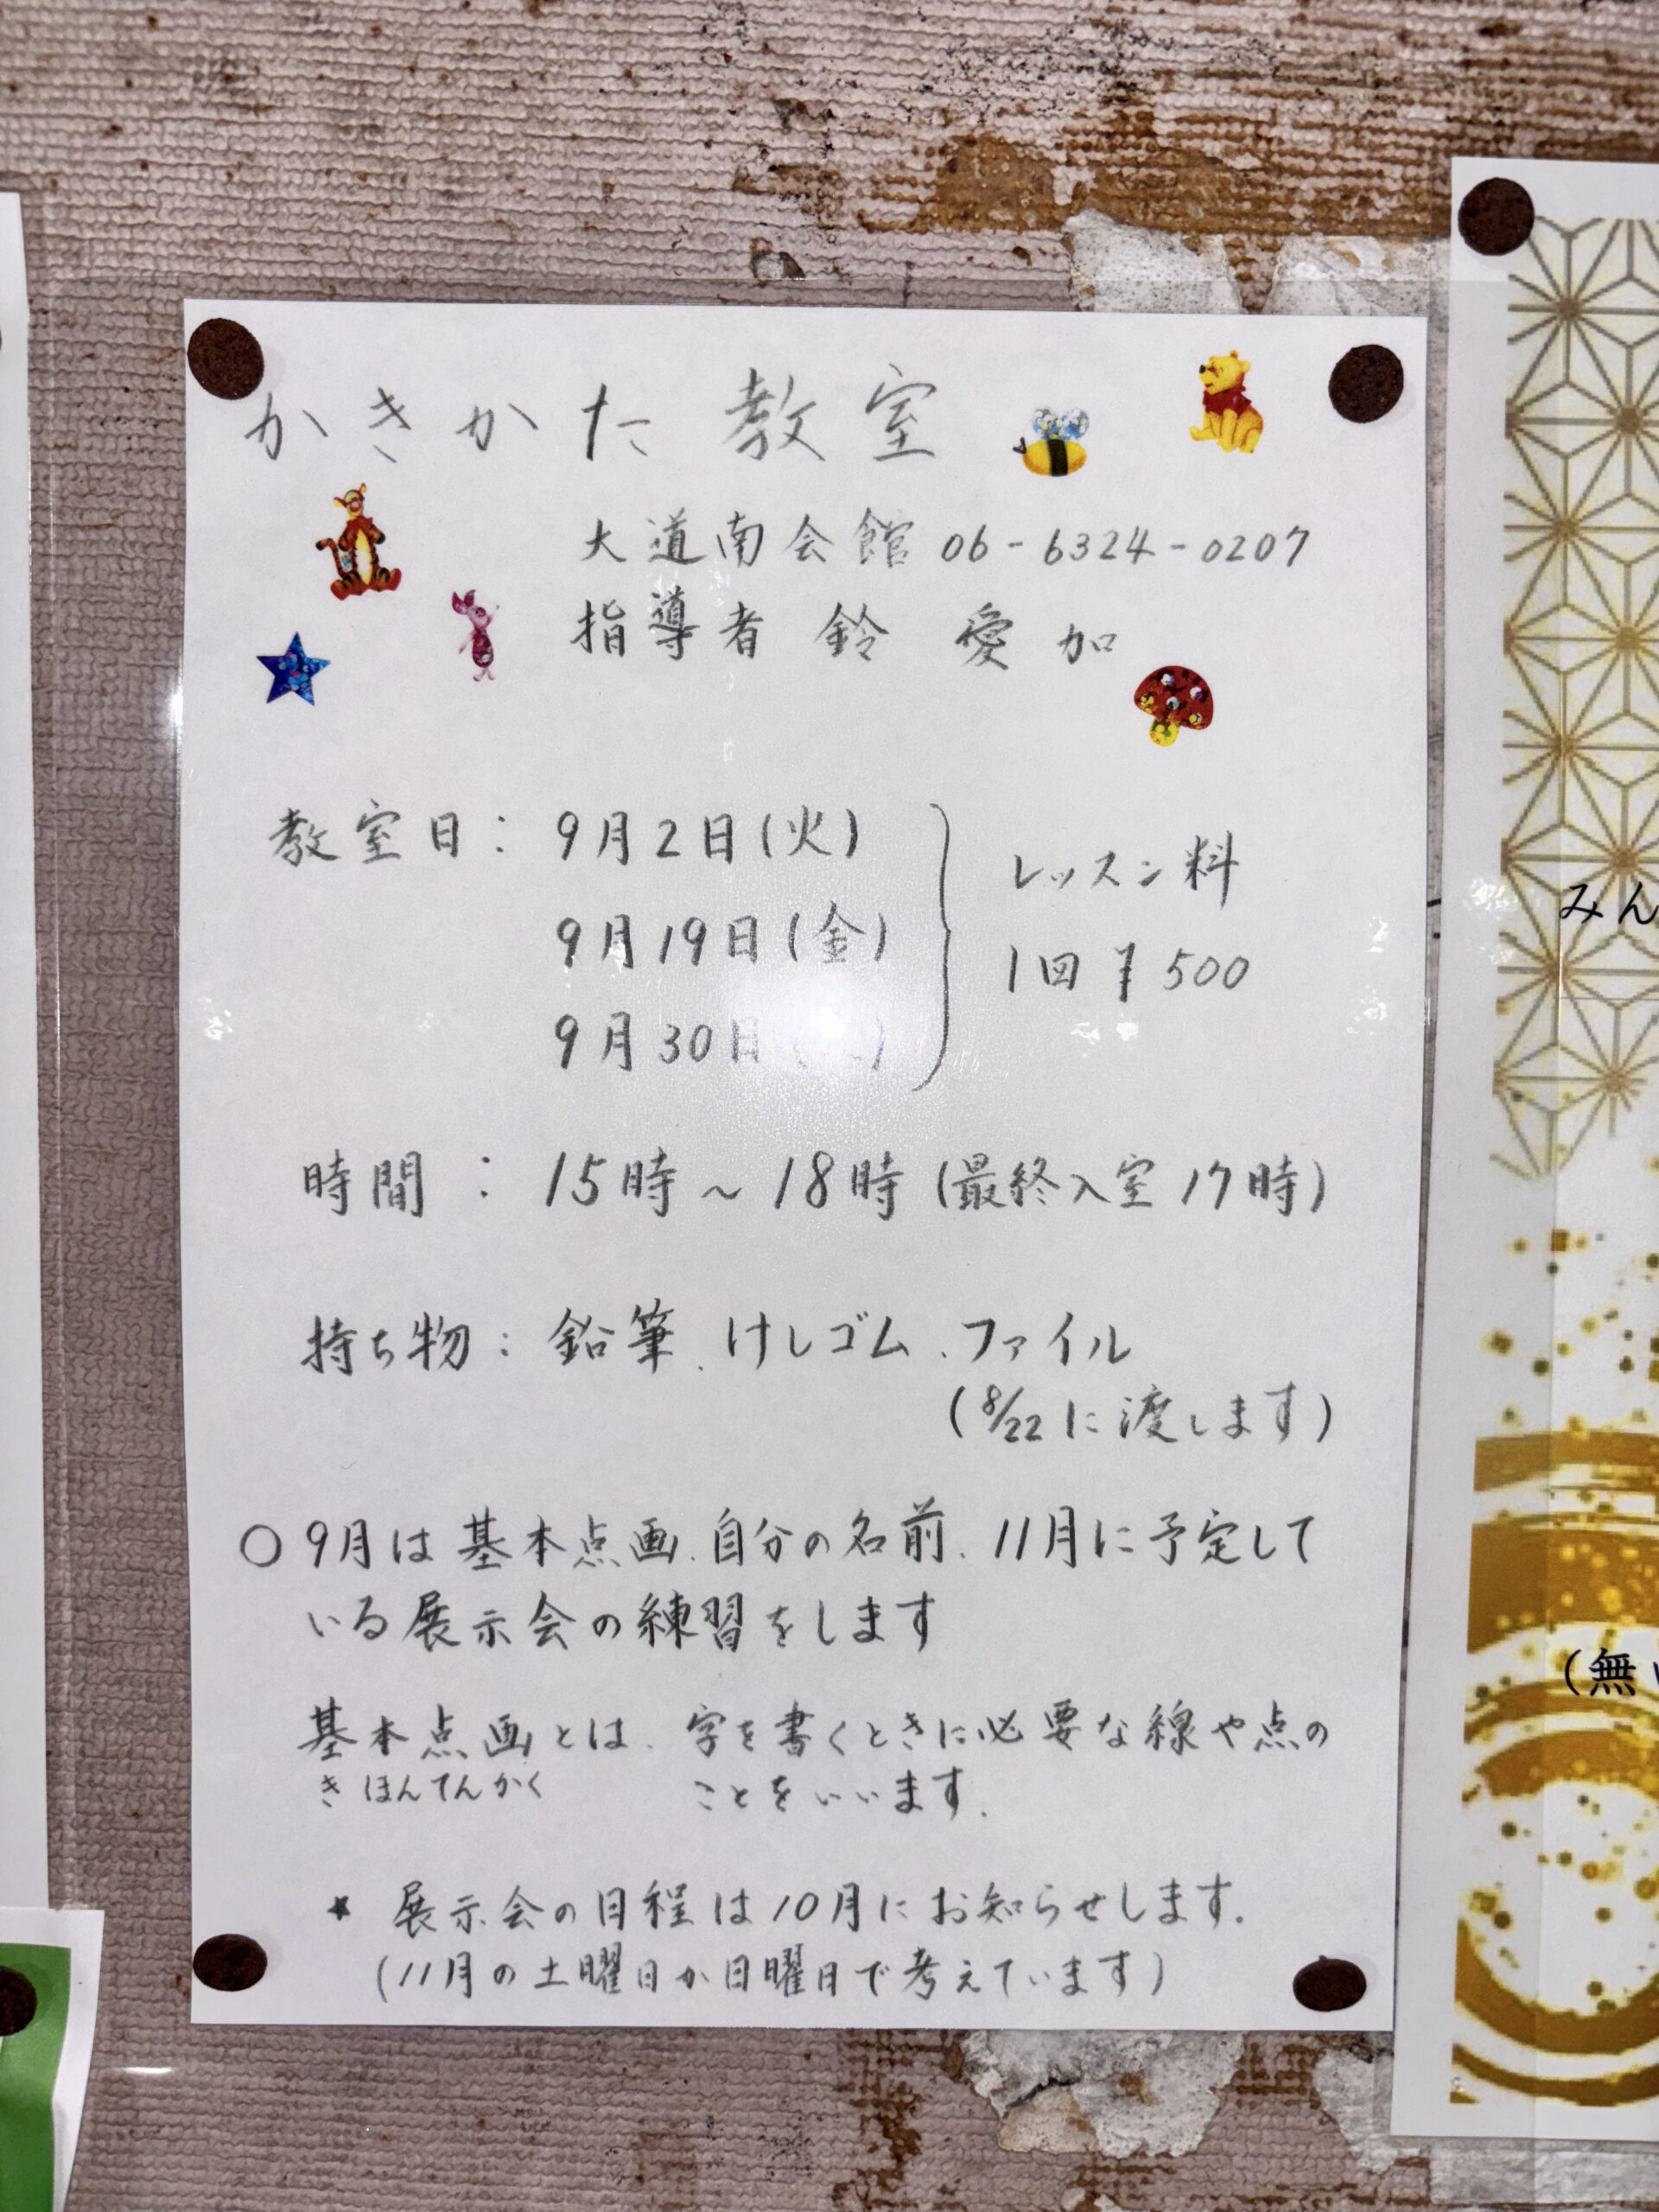 かきかた教室
大道南会館 06-6324-0207
指導者 鈴 愛加
教室日: 9月2日(火)
9月19日(金)
9月30日
レッスン料
1回 ¥500
時間 : 15時~18時(最終入室17時)
持ち物: 鉛筆、けしゴム、ファイル
(8/22に渡します)
○9月は基本点画、自分の名前、11月に予定して
いる展示会の練習をします
基本点画とは、字を書くときに必要な線や点の
きほんてんかく ことをいいます。
★ 展示会の日程は10月にお知らせします。
(11月の土曜日か日曜日で考えています)
みん
(無